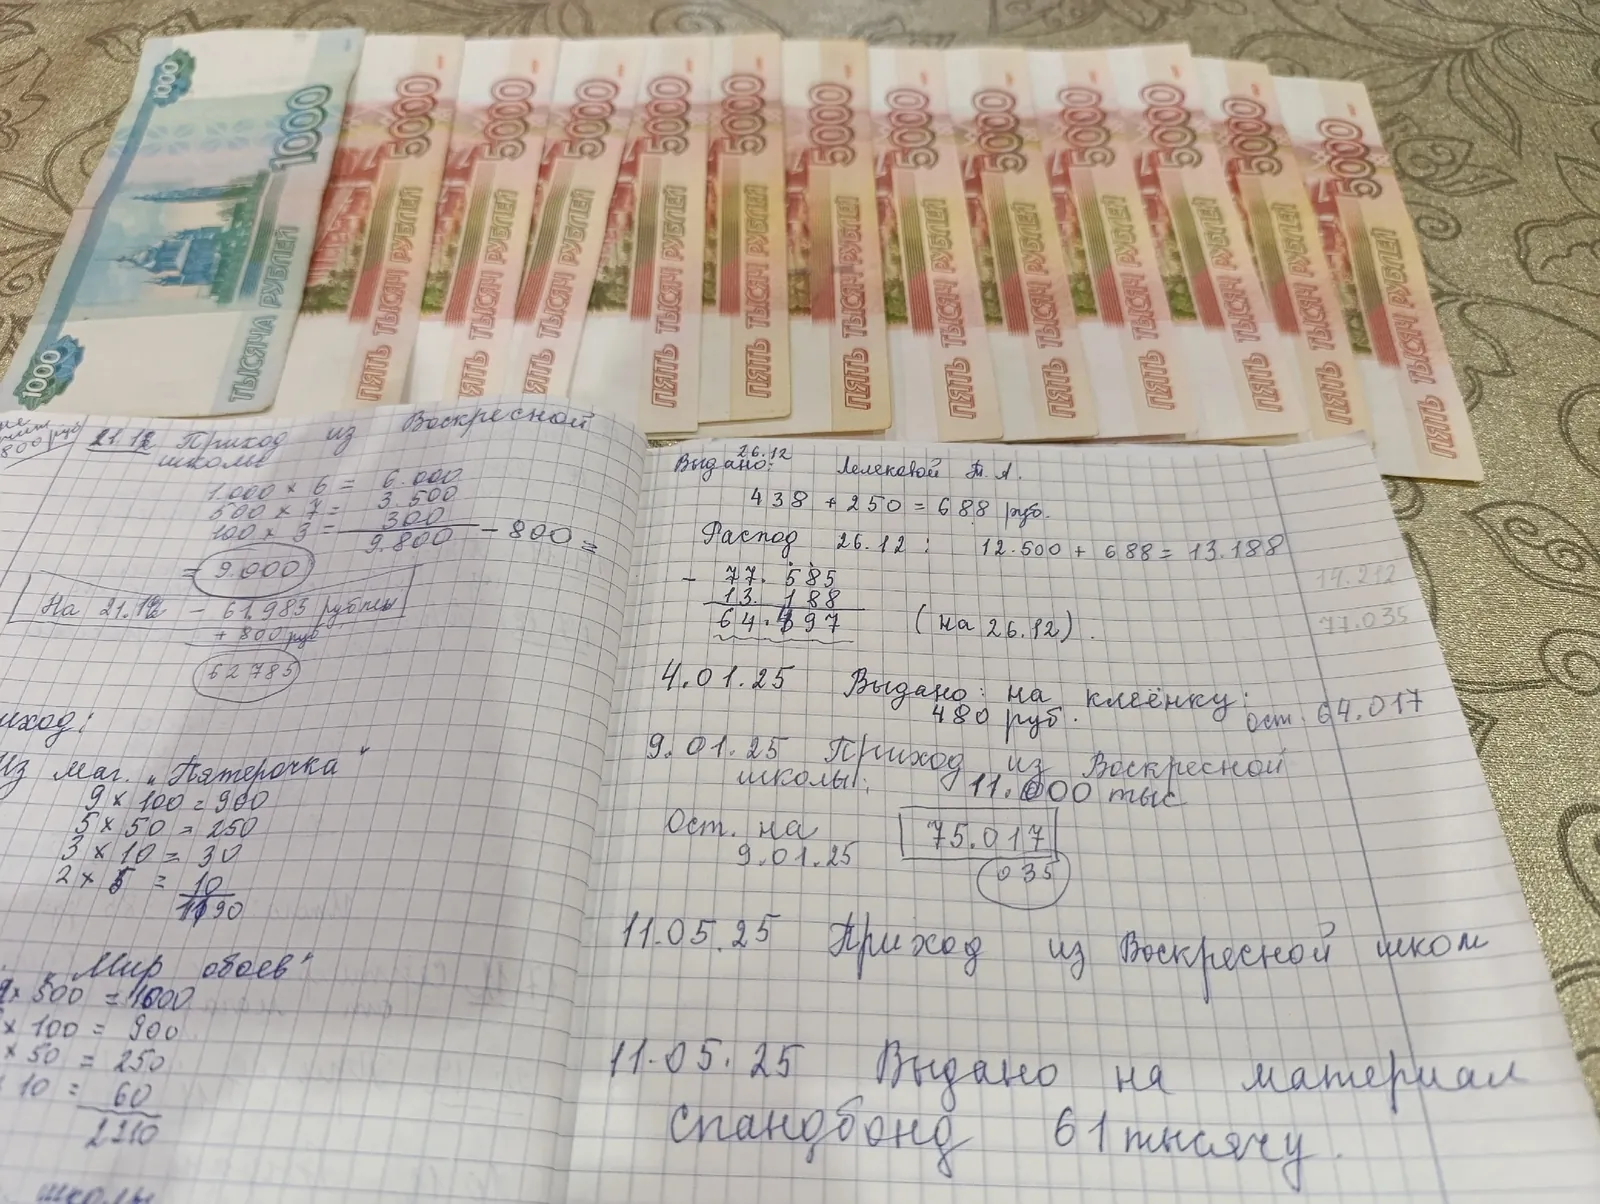 1000
1000
1000
ТЫСЯЧА РУБЛЕЙ
5000
ПЯТЬ ТЫСЯЧ РУБЛЕЙ
5000
ПЯТЬ ТЫСЯЧ РУБЛЕЙ
5000
ПЯТЬ ТЫСЯЧ РУБЛЕЙ
5000
ПЯТЬ ТЫСЯЧ РУБЛЕЙ
5000
ПЯТЬ ТЫСЯЧ РУБЛЕЙ
5000
ПЯТЬ ТЫСЯЧ РУБЛЕЙ
5000
ПЯТЬ ТЫСЯЧ РУБЛЕЙ
5000
ПЯТЬ ТЫСЯЧ РУБЛЕЙ
5000
ПЯТЬ ТЫСЯЧ РУБЛЕЙ
5000
ПЯТЬ ТЫСЯЧ РУБЛЕЙ
5000
ПЯТЬ ТЫСЯЧ РУБЛЕЙ
5000
ПЯТЬ ТЫСЯЧ РУБЛЕЙ
800 руб
21.12 Приход из Воскресной
школы
1.000 × 6 = 6.000
500 × 7 = 3.500
100 × 3 = 300
9.800 - 800 =
= 9.000
На 21.12 - 61.985 рублей
+ 800 руб
62785
иход:
Из маг. „Пятерочка"
9 × 100 = 900
5 × 50 = 250
3 × 10 = 30
2 × 5 = 10
1190
„Мир обоев"
× 500 = 1000
× 100 = 900
× 50 = 250
10 = 60
2210
школы
26.12
Выдано: Лелековой Т. А.
438 + 250 = 688 руб.
Расход 26.12 : 12.500 + 688 = 13.188
- 77.585
13.188
64.497 (на 26.12).
14.212
77.035
4.01.25 Выдано: на клеёнку:
480 руб. ост. 64.017
9.01.25 Приход из Воскресной
школы: 11.000 тыс
Ост. на 75.017
9.01.25 035
11.05.25 Приход из Воскресной школ
11.05.25 Выдано на материал
спандбонд 61 тысячу.